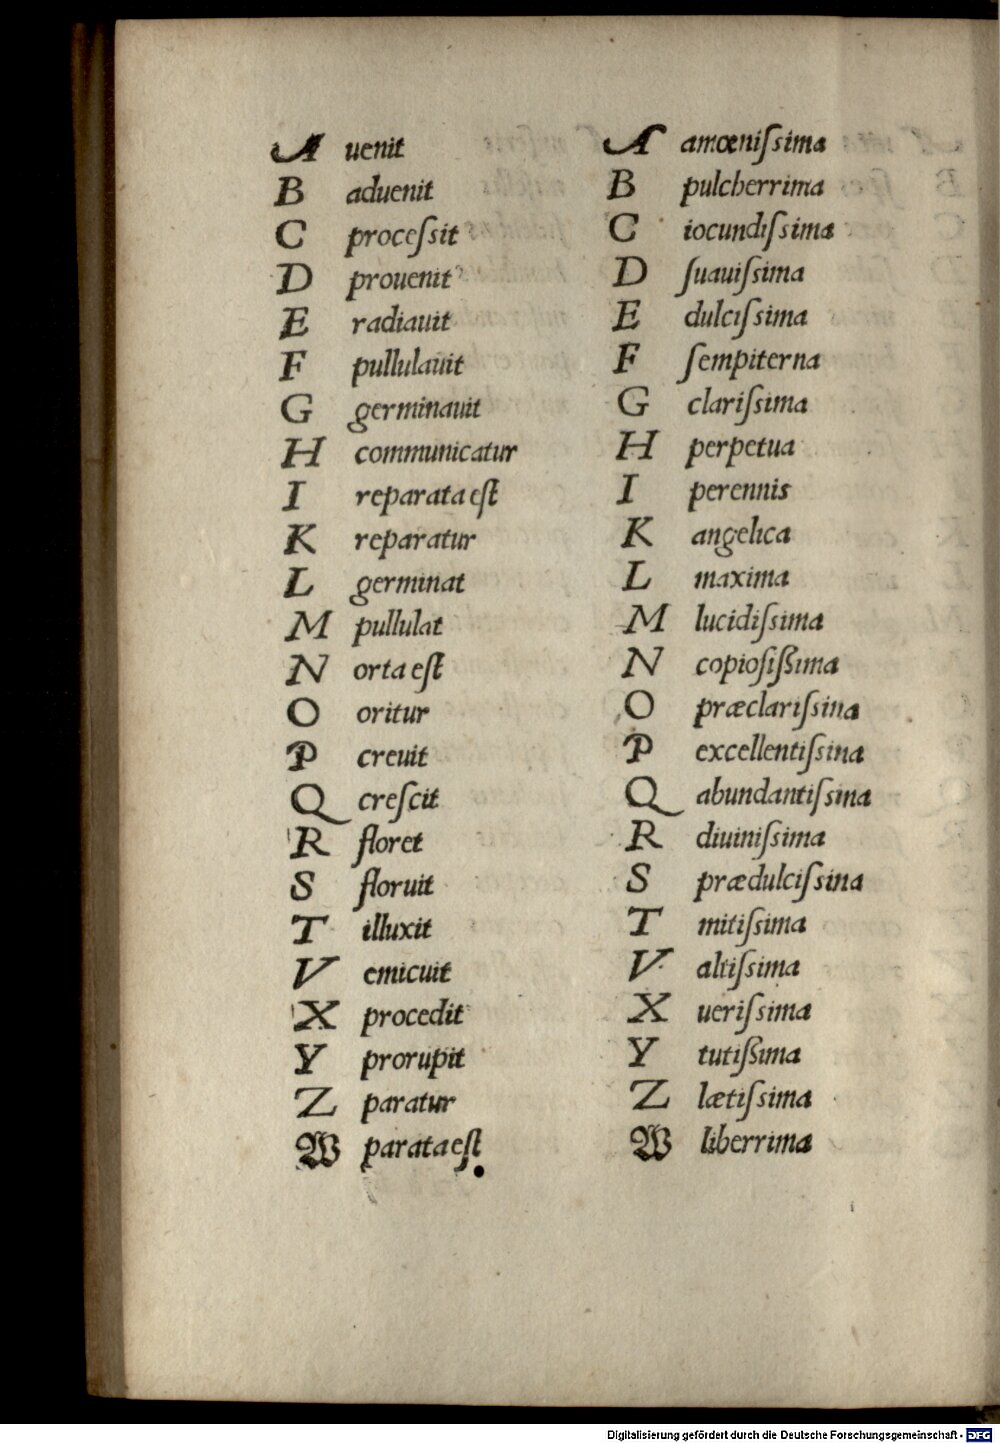 A uenit
B aduenit
C proceſsit
D prouenit
E radiauit
F pullulauit
G germinauit
H communicatur
I reparata eſt
K reparatur
L germinat
M pullulat
N orta eſt
O oritur
P creuit
Q creſcit
R floret
S floruit
T illuxit
V emicuit
X procedit
Y prorupit
Z paratur
W parata eſt
A amœniſsima
B pulcherrima
C iocundiſsima
D ſuauiſsima
E dulciſsima
F ſempiterna
G clariſsima
H perpetua
I perennis
K angelica
L maxima
M lucidiſsima
N copioſißima
O præclariſsina
P excellentiſsina
Q abundantiſsma
R diuiniſsima
S prædulciſsina
T mitiſsima
V altiſsima
X ueriſsima
Y tutißima
Z lætiſsima
W liberrima
Digitalisierung gefördert durch die Deutsche Forschungsgemeinschaft - DFG